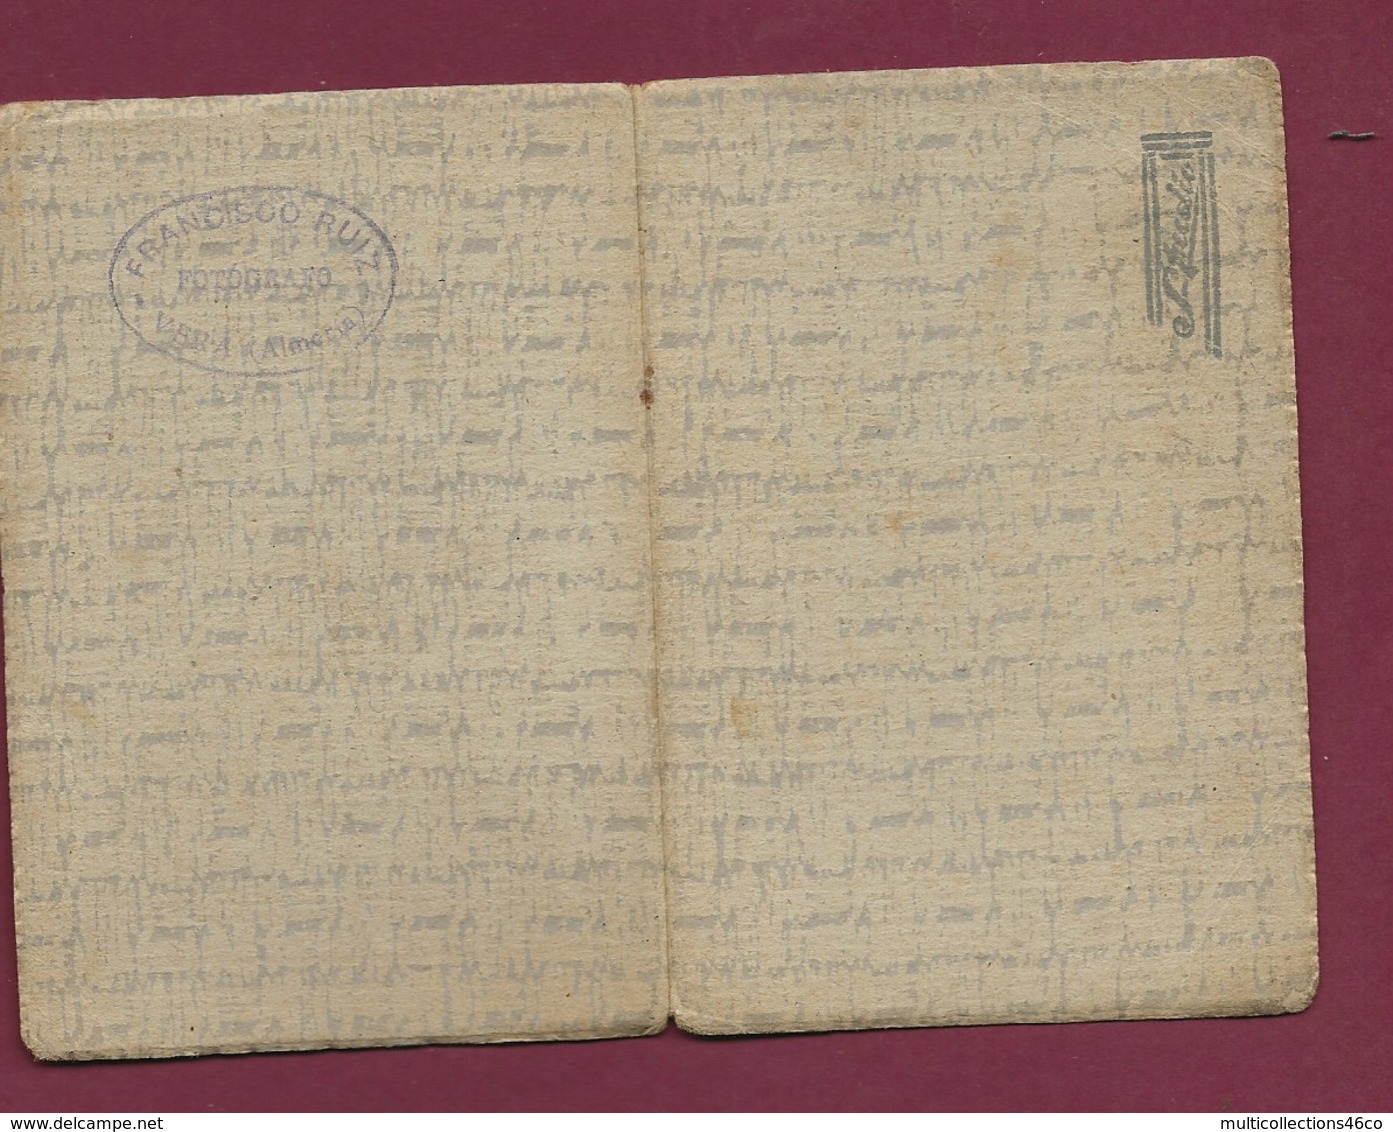 FRANCISCO RUIZ
FOTÓGRAFO
VERA (Almería)
www.delcampe.net
multicollections46co